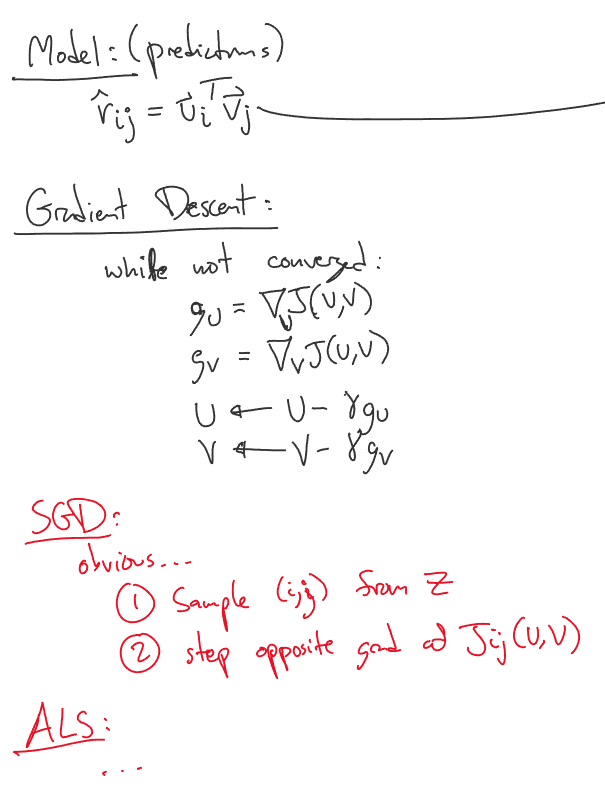 Model: (predictions)
r̂ij = u⃗iᵀ v⃗j
Gradient Descent:
while not converged:
gU = ∇U J(U,V)
gV = ∇V J(U,V)
U ← U - γgU
V ← V - γgV
SGD:
obvious...
① Sample (i,j) from Z
② step opposite grad of Jij(U,V)
ALS:
...